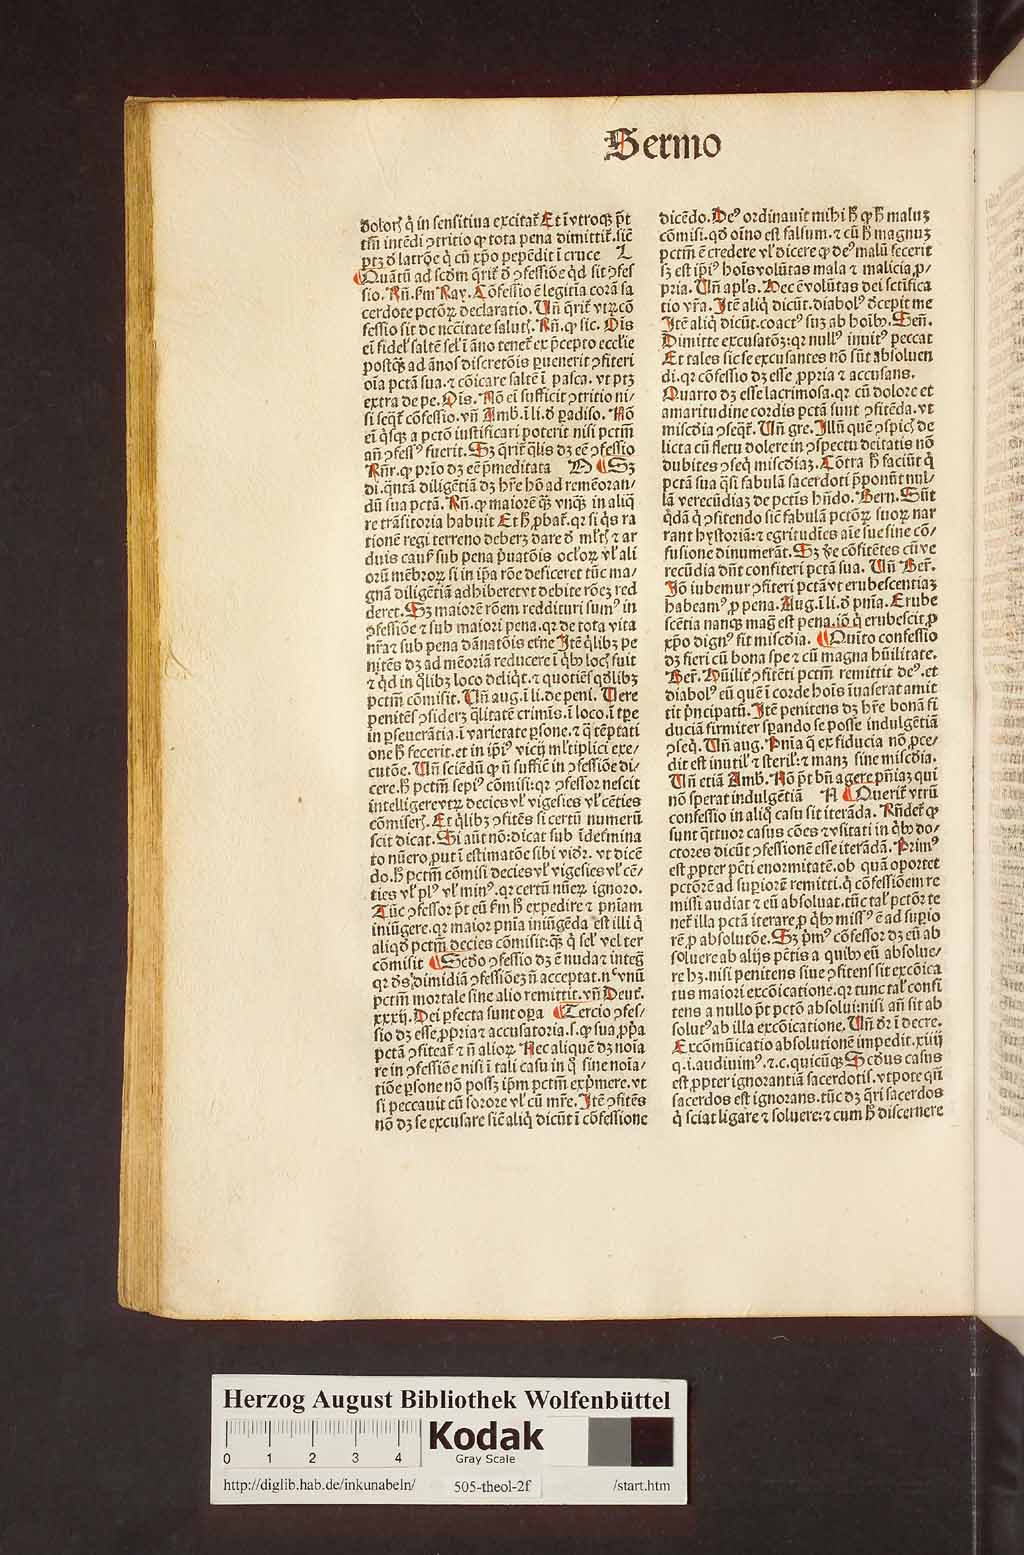 Sermo
dolorꝭ q̇ in sensitiua excitat᷑ Et ī vtroqꝫ p̄t
tm̄ intēdi ꝯtritio ꝙ tota pena dimittit᷑. sic̄
ptꝫ d̓ latrōe q̇ cū xp̄o pepēdit ī cruce L
Quātū ad scd̓m q̄rit᷑ d̓ ꝯfessiōe qd̓ sit ꝯfes
sio. Rn̄. ẜm Ray. Cōfessio ē legitīa corā sa
cerdote pctōꝝ declaratio. Un̄ q̄rit᷑ vtꝝ cō
fessio sit de nc̄citate salutꝭ. Rn̄. ꝙ sic. Oīs
ei fidel᷑ saltē sel᷑ ī āno tenet᷑ ex p̄cepto ecclīe
postqꝫ̄ ad ānos discretōis ꝑuenerit ꝯfiteri
oīa pctā sua. ⁊ cōicare saltē ī pasca. vt ptꝫ
extra de pe. Oīs. Nō ei sufficit ꝯtritio ni/
si seqt᷑ cōfessio. vn̄ Amb. ī li. d̓ ꝑadiso. Nō
ei q̇sqꝫ a pctō iustificari poterit nisi pctm̄
an̄ ꝯfessꝰ fuerit. Sꝫ q̄rit᷑ q̄lis dꝫ eē ꝯfessio
Rn̄r. ꝙ prīo dꝫ eē p̄meditata M Sꝫ
di. q̄ntā diligētiā dꝫ hr̄e hō ad remēoran/
dū sua pctā. Rn̄. ꝙ maiorē qꝫ̄ vnqꝫ̄ in aliq̄
re trāsitoria habuit Et h̓ ꝓbat᷑. qr si q̇s ra
tionē regi terreno deberꝫ dare d̓ ml̓tꝭ ⁊ ar
duis cauẜ sub pena p̄uatōis ocl̓oꝝ vl̓ ali
orū mēbroꝝ si in ip̄a rōe deficeret tūc ma/
gnā diligētiā adhiberet vt debite rōeꝫ red
deret. Sꝫ maiorē rōem reddituri sumꝰ in
ꝯfessiōe ⁊ sub maiori pena. qr de tota vita
nr̄a ⁊ sub pena dānatōis etn̄e Itē q̇libꝫ pe
nitēs dꝫ ad mēoriā reducere ī q̇bꝰ locꝭ fuit
⁊ qd̓ in q̇libꝫ loco deliqt. ⁊ quotiēs qd̓libꝫ
pctm̄ cōmisit. Un̄ aug. ī li. de peni. Uere
penitēs ꝯsiderꝫ q̄litatē crimīs. ī loco. ī tp̄e
in ꝑseuerātia. ī varietate ꝑsone. ⁊ q̄ tēptati
one h̓ fecerit. et in ip̄iꝰ vicij ml̓tiplici exe/
cutōe. Un̄ sciēdū ꝙ n̄ suffic̄ in ꝯfessiōe di/
cere. h̓ pctm̄ sepiꝰ cōmisi: qr ꝯfessor nescit
intelligere vtꝝ decies vl̓ vigesies vl̓ cēties
cōmiserꝭ. Et q̇libꝫ ꝯfitēs si certū numerū
scit dicat. Si aūt nō: dicat sub īdet̓mina
to nūero, ꝓut ī estimatōe sibi vidr̄. vt dicē
do. h̓ pctm̄ cōmisi decies vl̓ vigesies vl̓ cē/
ties vl̓ plꝰ vl̓ minꝰ. qr certū nūeꝝ ignoro.
Tūc ꝯfessor p̄t eū ẜm h̓ expedire ⁊ pn̄iam
iniūgere. qr maior pn̄ia iniūgēda est illi q̇
aliqd̓ pctm̄ decies cōmisit: qꝫ̄ q̇ sel᷑ vel ter
cōmisit Scd̓o ꝯfessio dꝫ ē nuda ⁊ integ̓
qr dn̄s dimidiā ꝯfessiōeꝫ n̄ acceptat. nᶜ vnū
pctm̄ mortale sine alio remittit. vn̄ Deut᷑.
xxxij. Dei ꝑfecta sunt oꝑa Tercio ꝯfes/
sio dꝫ esse, ꝓpria ⁊ accusatoria. s. ꝙ sua, ꝓp̓a
pctā ꝯfiteat᷑ ⁊ n̄ alioꝝ Nec aliquē dꝫ noīa
re in ꝯfessiōe nisi ī tali casu in q̊ sine noīa/
tiōe ꝑsone nō possꝫ ip̄m pctm̄ exp̓mere. vt
si peccauit cū sorore vl̓ cū mr̄e. Itē ꝯfitēs
nō dꝫ se excusare sic̄ aliq̇ dicūt ī cōfessione
dicēdo. Deꝰ ordinauit mihi h̓ ꝙ h̓ maluꝫ
cōmisi. qd̓ oīno est falsum. ⁊ cū h̓ magnuꝫ
pctm̄ ē credere vl̓ dicere ꝙ deꝰ malū fecerit
sꝫ est ip̄iꝰ hoīs volūtas mala ⁊ malicia, ꝓ/
pria. Un̄ apl̓s. Hec ē volūtas dei sctifica
tio vr̄a. Itē aliq̇ dicūt. diabolꝰ d̓cepit me
Itē aliq̇ dicūt. coactꝰ suꝫ ab hoībꝰ. Sen̄.
Dimitte excusatōꝫ: qr nullꝰ inuitꝰ peccat
Et tales sic se excusantes nō sūt absoluen
di. qr cōfessio dꝫ esse, ꝓpria ⁊ accusans.
Quarto dꝫ esse lacrimosa. qr cū dolore et
amaritudine cordis pctā sunt ꝯfitēda. vt
miscd̓ia ꝯseqt᷑. Un̄ gre. Illū quē ꝯspicꝭ de
licta cū fletu dolere in ꝯspectu deitatis nō
dubites ꝯseq̇ miscd̓iaꝫ. Cōtra h̓ faciūt q̇
pctā sua q̄si fabulā sacerdoti p̄ponūt nul/
lā verecūdiaꝫ de pctīs hn̄do. Bern. Sūt
q̇dā q̇ ꝯfitendo sic̄ fabulā pctōꝝ suoꝝ nar
rant hystoriā: ⁊ egritudīes aīe sue sine cō/
fusione dinumerāt. Sꝫ v̓e cōfitētes cū ve
recūdia dn̄t confiteri pctā sua. Un̄ Ber̄.
Iō iubemur ꝯfiteri pctā vt erubescentiaꝫ
habeamꝰ, ꝓ pena. Aug. ī li. d̓ pn̄ia. Erube
scētia nanqꝫ mag̓ est pena. iō q̇ erubescit, ꝓ
xp̄o dignꝰ fit miscd̓ia. Quīto confessio
dꝫ fieri cū bona spe ⁊ cū magna hūilitate.
Ber̄. Hūilit᷑ ꝯfitēti pctm̄ remittit deꝰ. et
diabolꝰ eū quē ī corde hoīs īuaserat amit
tit p̓ncipatū. Itē penitens dꝫ hr̄e bonā fi
duciā firmiter sꝑando se posse indulgētiā
ꝯseq̇. Un̄ aug. Pn̄ia q̄ ex fiducia nō, ꝓce/
dit est inutil᷑ ⁊ steril᷑: ⁊ manꝫ sine miscd̓ia.
Un̄ etiā Amb. Nō p̄t bn̄ agere pn̄iaꝫ qui
nō sperat indulgētiā N Querit᷑ vtrū
confessio in aliq̊ casu sit iterāda. Rn̄det᷑ ꝙ
sunt q̄ttuor casus cōes ⁊ vsitati in q̇bꝰ do/
ctores dicūt ꝯfessionē esse iterādā. Primꝰ
est, ꝓpter pc̄ti enormitatē. ob quā oportet
pctōrē ad suꝑiorē remitti. q̇ cōfessiōem re
missi audiat ⁊ eū absoluat. tūc tal᷑ pctōr te
net᷑ illa pctā iterare, ꝓ q̇bꝰ missꝰ ē ad suꝑio
rē, ꝓ absolutōe. Sꝫ p̓mꝰ cōfessor dꝫ eū ab
soluere ab alijs pc̄tis a quibꝰ eū absolue/
re hꝫ. nisi penitens siue ꝯfitens sit excōica
tus maiori excōicatione. qr tunc tal᷑ confi
tens a nullo p̄t pctō absolui: nisi an̄ sit ab
solutꝰ ab illa excōicatione. Un̄ dr̄ ī decre.
Excōmūicatio absolutionē impedit. xiiij
q. i. audiuimꝰ. ⁊. c. quicūqꝫ Scd̓us casus
est, ꝓpter ignorantiā sacerdotis. vtpote qn̄
sacerdos est ignorans. tūc dꝫ q̄ri sacerdos
q̇ sciat ligare ⁊ soluere: ⁊ cum h̓ discernere
Herzog August Bibliothek Wolfenbüttel
0 1 2 3 4
Kodak
Gray Scale
http://diglib.hab.de/inkunabeln/ 505-theol-2f /start.htm